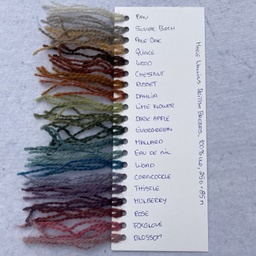 FAWN
SILVER BIRCH
PALE OAK
QUINCE
WOOD
CHESTNUT
RUSSET
DAHLIA
LIME FLOWER
DARK APPLE
EVERGREEN
MALLARD
EAU DE NIL
WOAD
CORNCOCKLE
THISTLE
MULBERRY
ROSE
FOXGLOVE
BLOSSOM
BRITISH BREEDS, 100%